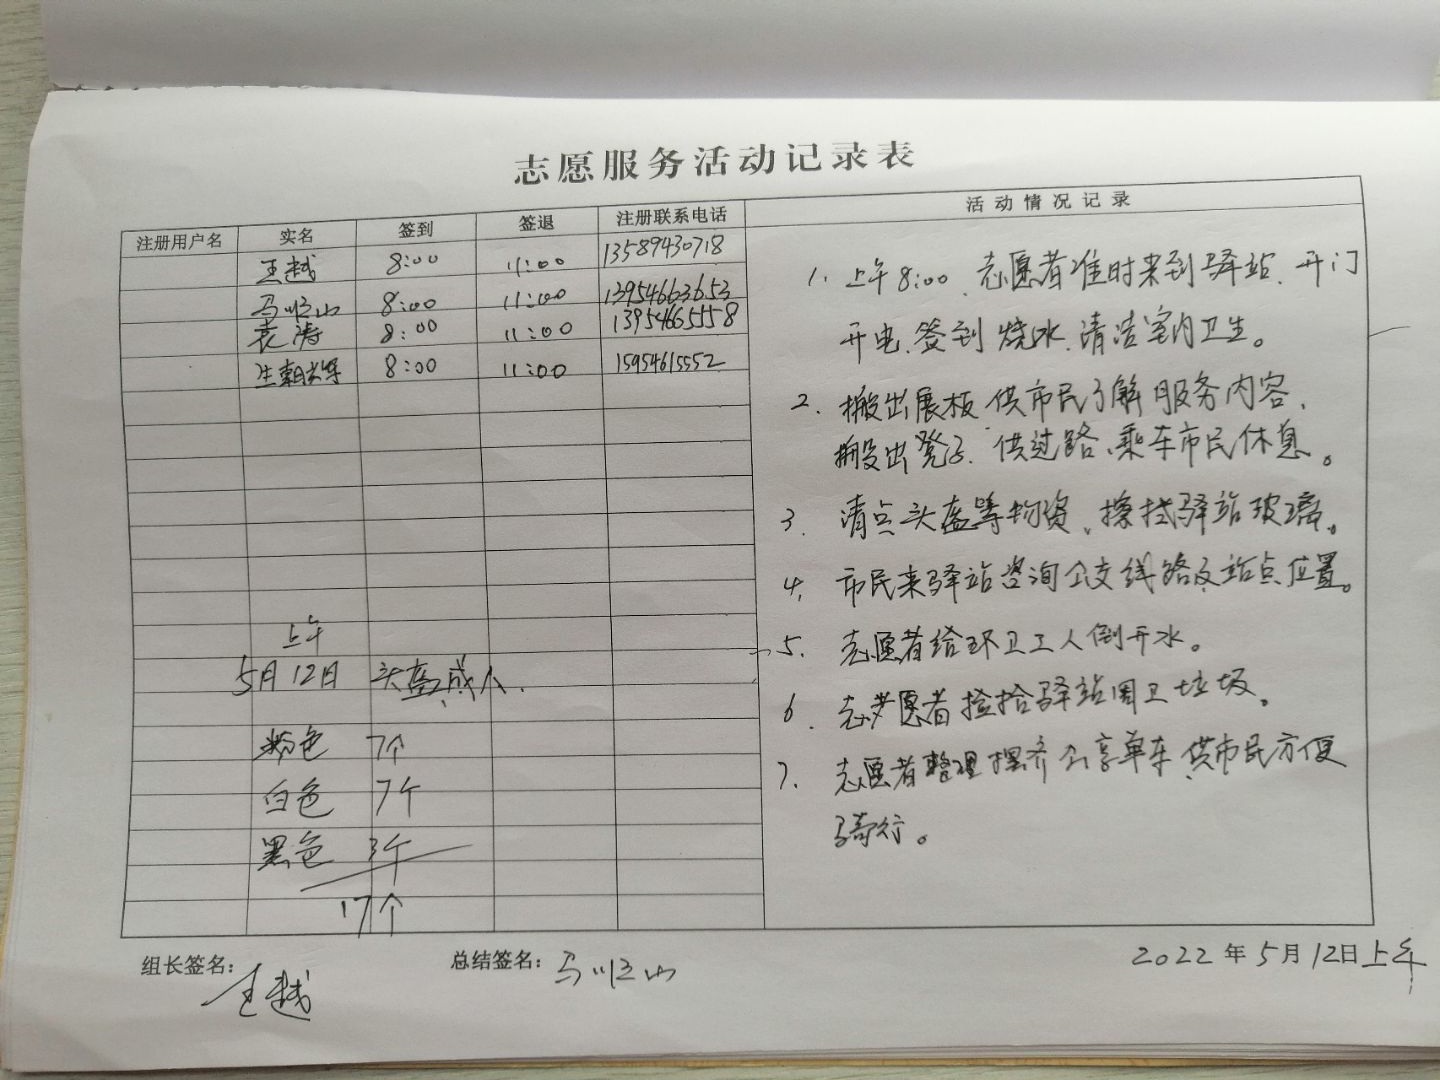 志愿服务活动记录表
注册用户名 实名 签到 签退 注册联系电话 活动情况记录
王越 8:00 11:00 13589430718
马恒山 8:00 11:00 13954663653
袁涛 8:00 11:00 13954665558
8:00 11:00 15954615552
上午
5月12日 头盔,成人.
粉色 7个
白色 7个
黑色 3个
17个
1. 上午8:00、志愿者准时来到驿站、开门
开电、签到烧水、清洁室内卫生。
2. 搬出展板、供市民了解服务内容、
搬出凳子、供过路、乘车市民休息。
3. 清点头盔等物资、擦拭驿站玻璃。
4. 市民来驿站咨询公交线路及站点位置。
5. 志愿者给环卫工人倒开水。
6. 志愿者捡拾驿站周卫垃圾。
7. 志愿者整理摆齐公享单车、供市民方便
骑行。
组长签名: 王越 总结签名: 马恒山 2022年5月12日上午